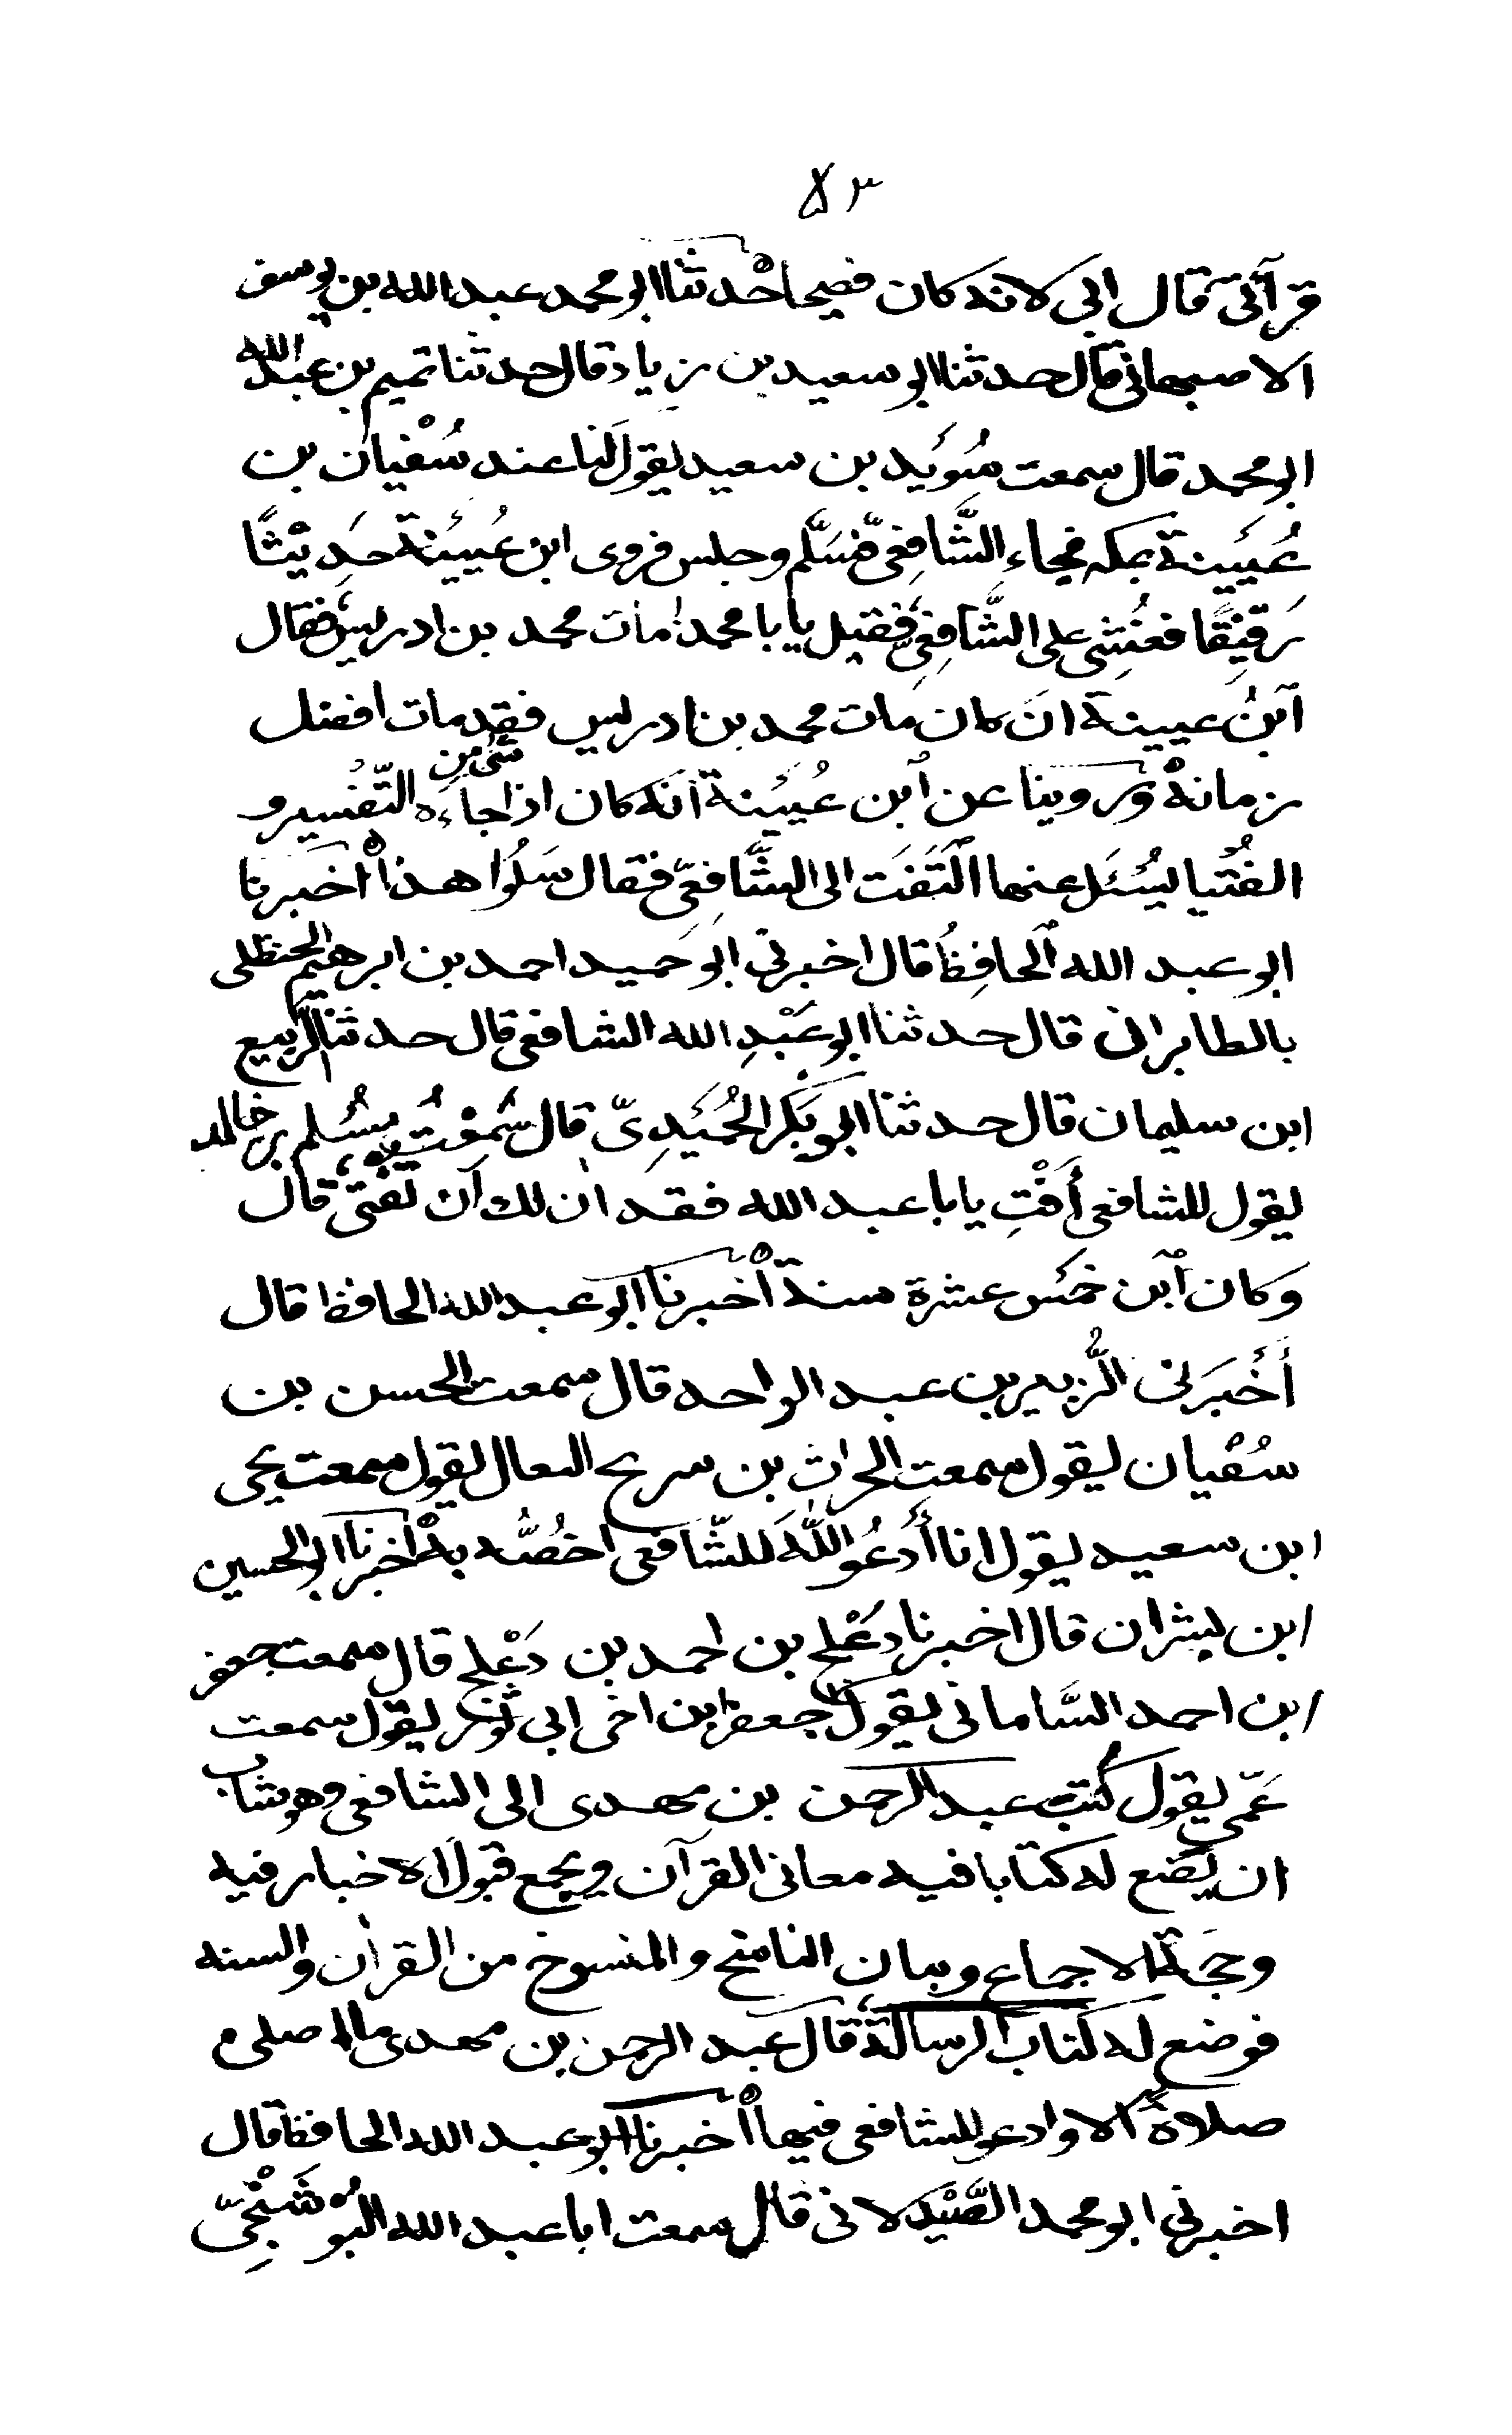 ٥٣
قرآتى قال ابى لانه كان فصيحا حْدثنا ابو محمد عبد الله بن يوسف
الاصبهانى قال حدثنا ابو سعيد بن زياد قال حدثنا تميم بن عبد الله
ابو محمد قال سمعت سُوَيد بن سعيد يقول كنا عند سُفْيان بن
عُيَيْنة بمكه فجاء الشَّافِعىّ فسَلَّم وجلس فروى ابن عُيَيْنة حَدِيْثًا
رَقيْقًا فغُشِى على الشَّافِعِىّ فقيل يابا محمد مات محمد بن ادريس فقال
ابنُ عيينة انَ كان مات محمد بن ادريس فقد مات افضل
زمانهْ وَروينا عن ابن عُيَيْنة انَه كان اذا جاءَه شئ من التّفْسير و
الفُتْيا يُسْئَل عنها الْتَفَت الى الشَّافِعىّ فقال سَلُوا هذا اخبرنا
ابو عبد الله الحافِظُ قال اخبرنى ابو حَميد احمد بن ابرهيم الحنظلى
بالطابران قال حدثنا ابو عَبْدِ الله الشافعى قال حدثنا الربيع
ابن سليمان قال حدثنا ابو بَكر الحُمَيْدِىّ قال سَمِعْتُ مُسْلم بن خالد
يقول للشافعى أَفْتِ يابا عبد الله فقد ان لك اَن تفتى قال
وَكان ابن خَمْس عشرة سنة أخبرنا ابو عبد الله الحافظ قال
أَخْبَرَنى الزُّبير بن عبد الواحد قال سمعت الحسن بن
سُفْيان يقول سمعت الحرث بن سريح النعال يقول سمعت يحيى
ابن سعيد يقول انا أَدعُو اللّٰهَ للشّافعى اخُصُّه بهْ اخبرنا ابو الحسين
ابن بشران قال اخبرنا دَعْلج بن احمد بن دَعْلج قال سمعت جعفر
ابن احمد السَّامانى يقول جعفر بن اخى ابى ثَوْر يقول سمعت
عَمّى يقول كُتب عبد الرحمن بن مهدى الى الشافعى وهو شاب
ان يَضع له كتابا فيه معانى القرآن ويجمع قبول الاخبار فيه
وحجَة الاجماع وبيان الناسخ والمنسوخ من القرآن والسنه
فوضع له كتاب الرسالة قال عبد الرحمن بن مهدى ما اصلى
صلاةً الا وادعو للشافعى فيها أخبرنا ابو عبد الله الحافظ قال
اخبرنى ابو محمد الصَّيْدلانى قال سمعت ابا عبد الله البُوشَنْجِىّ